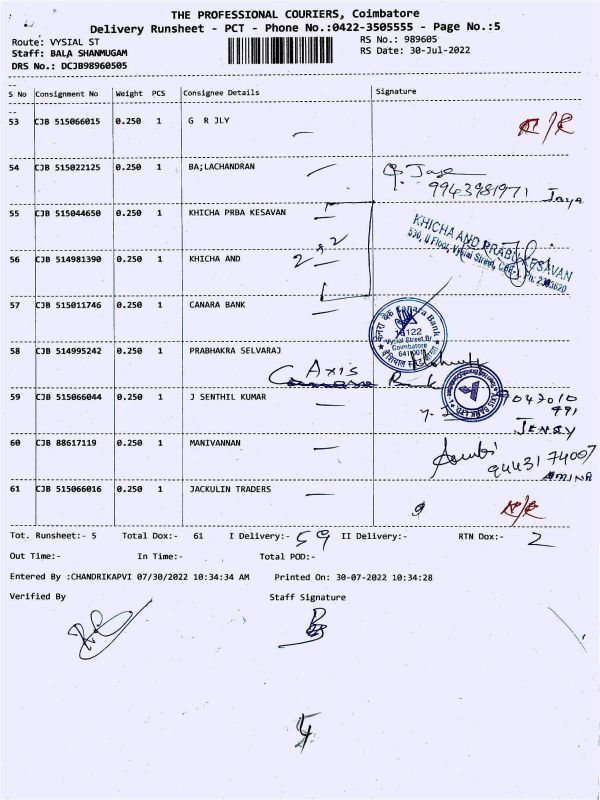 THE PROFESSIONAL COURIERS, Coimbatore
Delivery Runsheet - PCT - Phone No.:0422-3505555 - Page No.:5
Route: VYSIAL ST RS No.: 989605
Staff: BALA SHANMUGAM RS Date: 30-Jul-2022
DRS No.: DCJB98960505
S No Consignment No Weight PCS Consignee Details Signature
53 CJB 515066015 0.250 1 G R JLY
54 CJB 515022125 0.250 1 BA;LACHANDRAN
9943981971 Jaya
55 CJB 515044650 0.250 1 KHICHA PRBA KESAVAN
KHICHA AND PRABU KESAVAN
530, II Floor, Vysial Street,
56 CJB 514981390 0.250 1 KHICHA AND
57 CJB 515011746 0.250 1 CANARA BANK
Canara Bank
Vysial Street Br.
Coimbatore
58 CJB 514995242 0.250 1 PRABHAKRA SELVARAJ
Axis
Bank
AXIS BANK LTD
59 CJB 515066044 0.250 1 J SENTHIL KUMAR
JENSY
60 CJB 88617119 0.250 1 MANIVANNAN
9443174007
AMINA
61 CJB 515066016 0.250 1 JACKULIN TRADERS
Tot. Runsheet:- 5 Total Dox:- 61 I Delivery:- 59 II Delivery:- RTN Dox:- 2
Out Time:- In Time:- Total POD:-
Entered By :CHANDRIKAPVI 07/30/2022 10:34:34 AM Printed On: 30-07-2022 10:34:28
Verified By Staff Signature